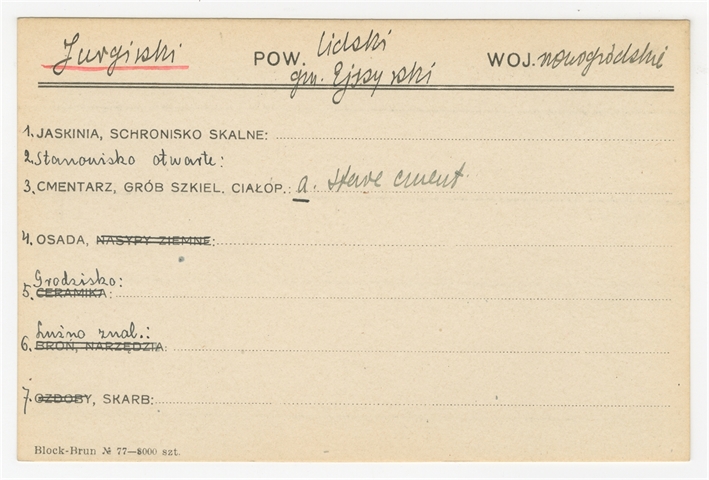 Jurgiski POW. lidski WOJ. nowogródzkie
gm. Ejszyski
1. JASKINIA, SCHRONISKO SKALNE:
2. Stanowisko otwarte:
3. CMENTARZ, GRÓB SZKIEL. CIAŁOP.: a. stare cment.
4. OSADA, NASYPY ZIEMNE:
Grodzisko:
5. CERAMIKA:
Luźno znal.:
6. BROŃ, NARZĘDZIA:
7. OZDOBY, SKARB:
Block-Brun № 77—8000 szt.